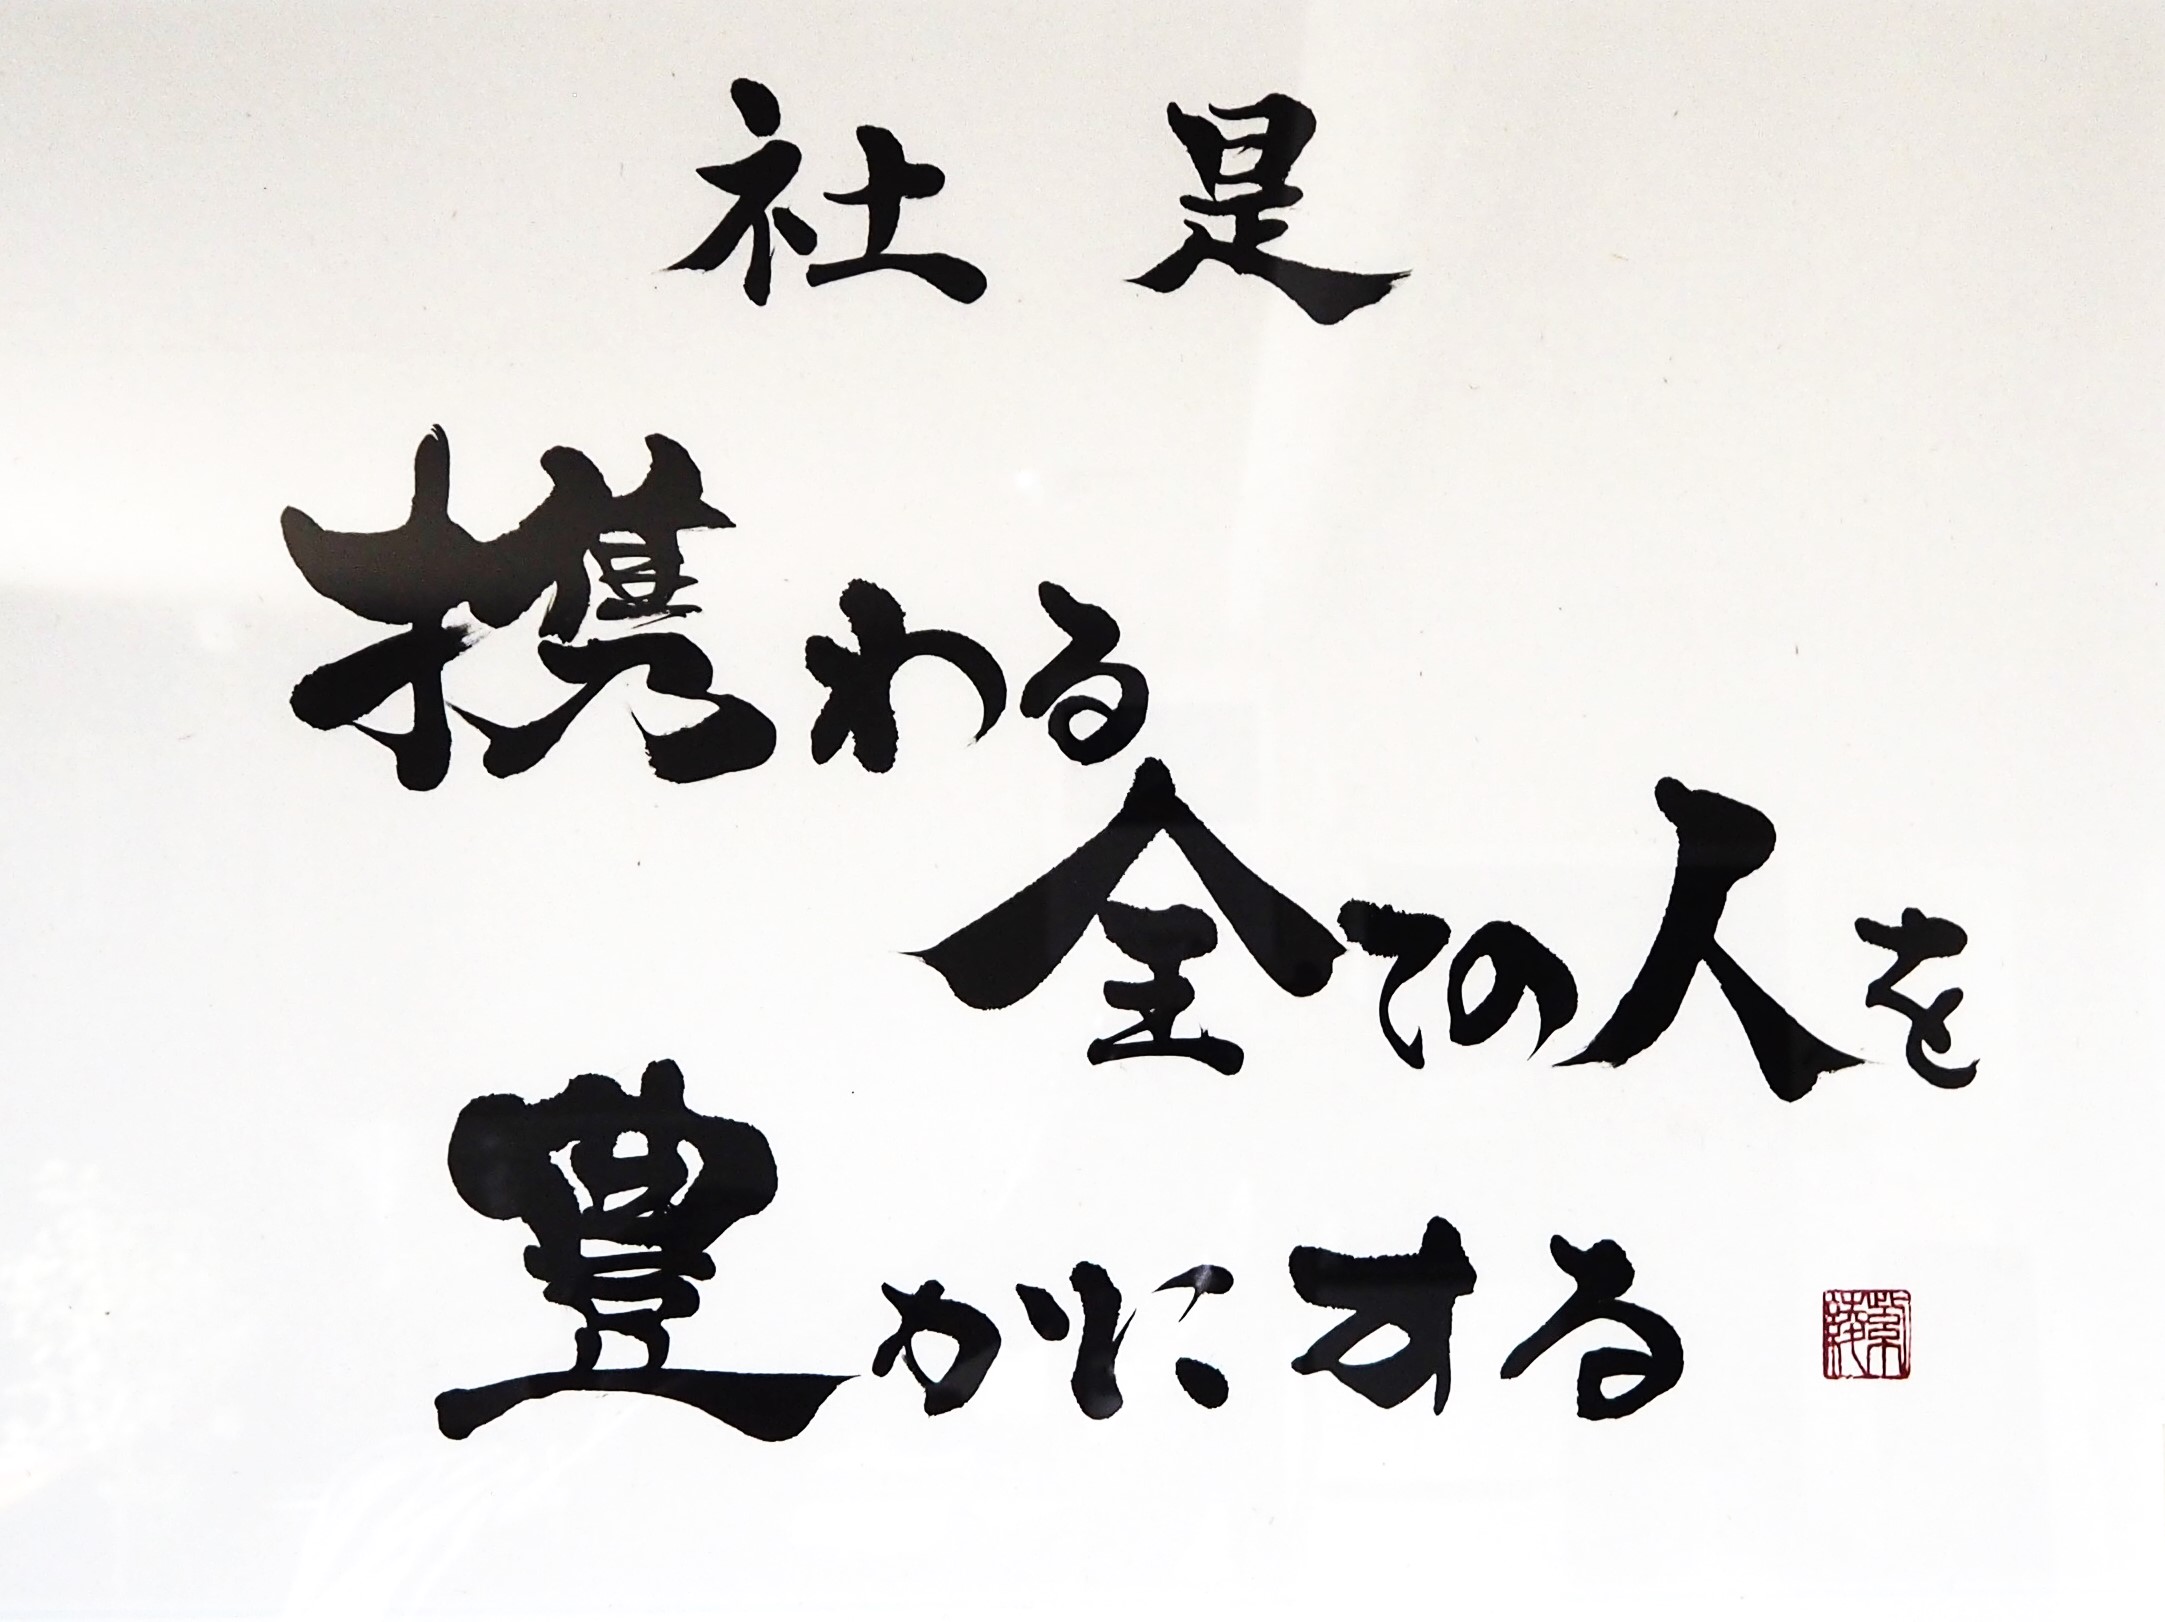 社是
携わる
全ての人を
豊かにする